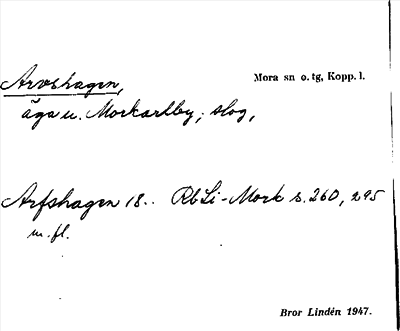 Arvshagen, Mora sn o. tg, Kopp. l.
äga u. Morkarlby; slog,
Arfshagen 18.. RbLi-Mork s. 260, 295
m. fl.
Bror Lindén 1947.